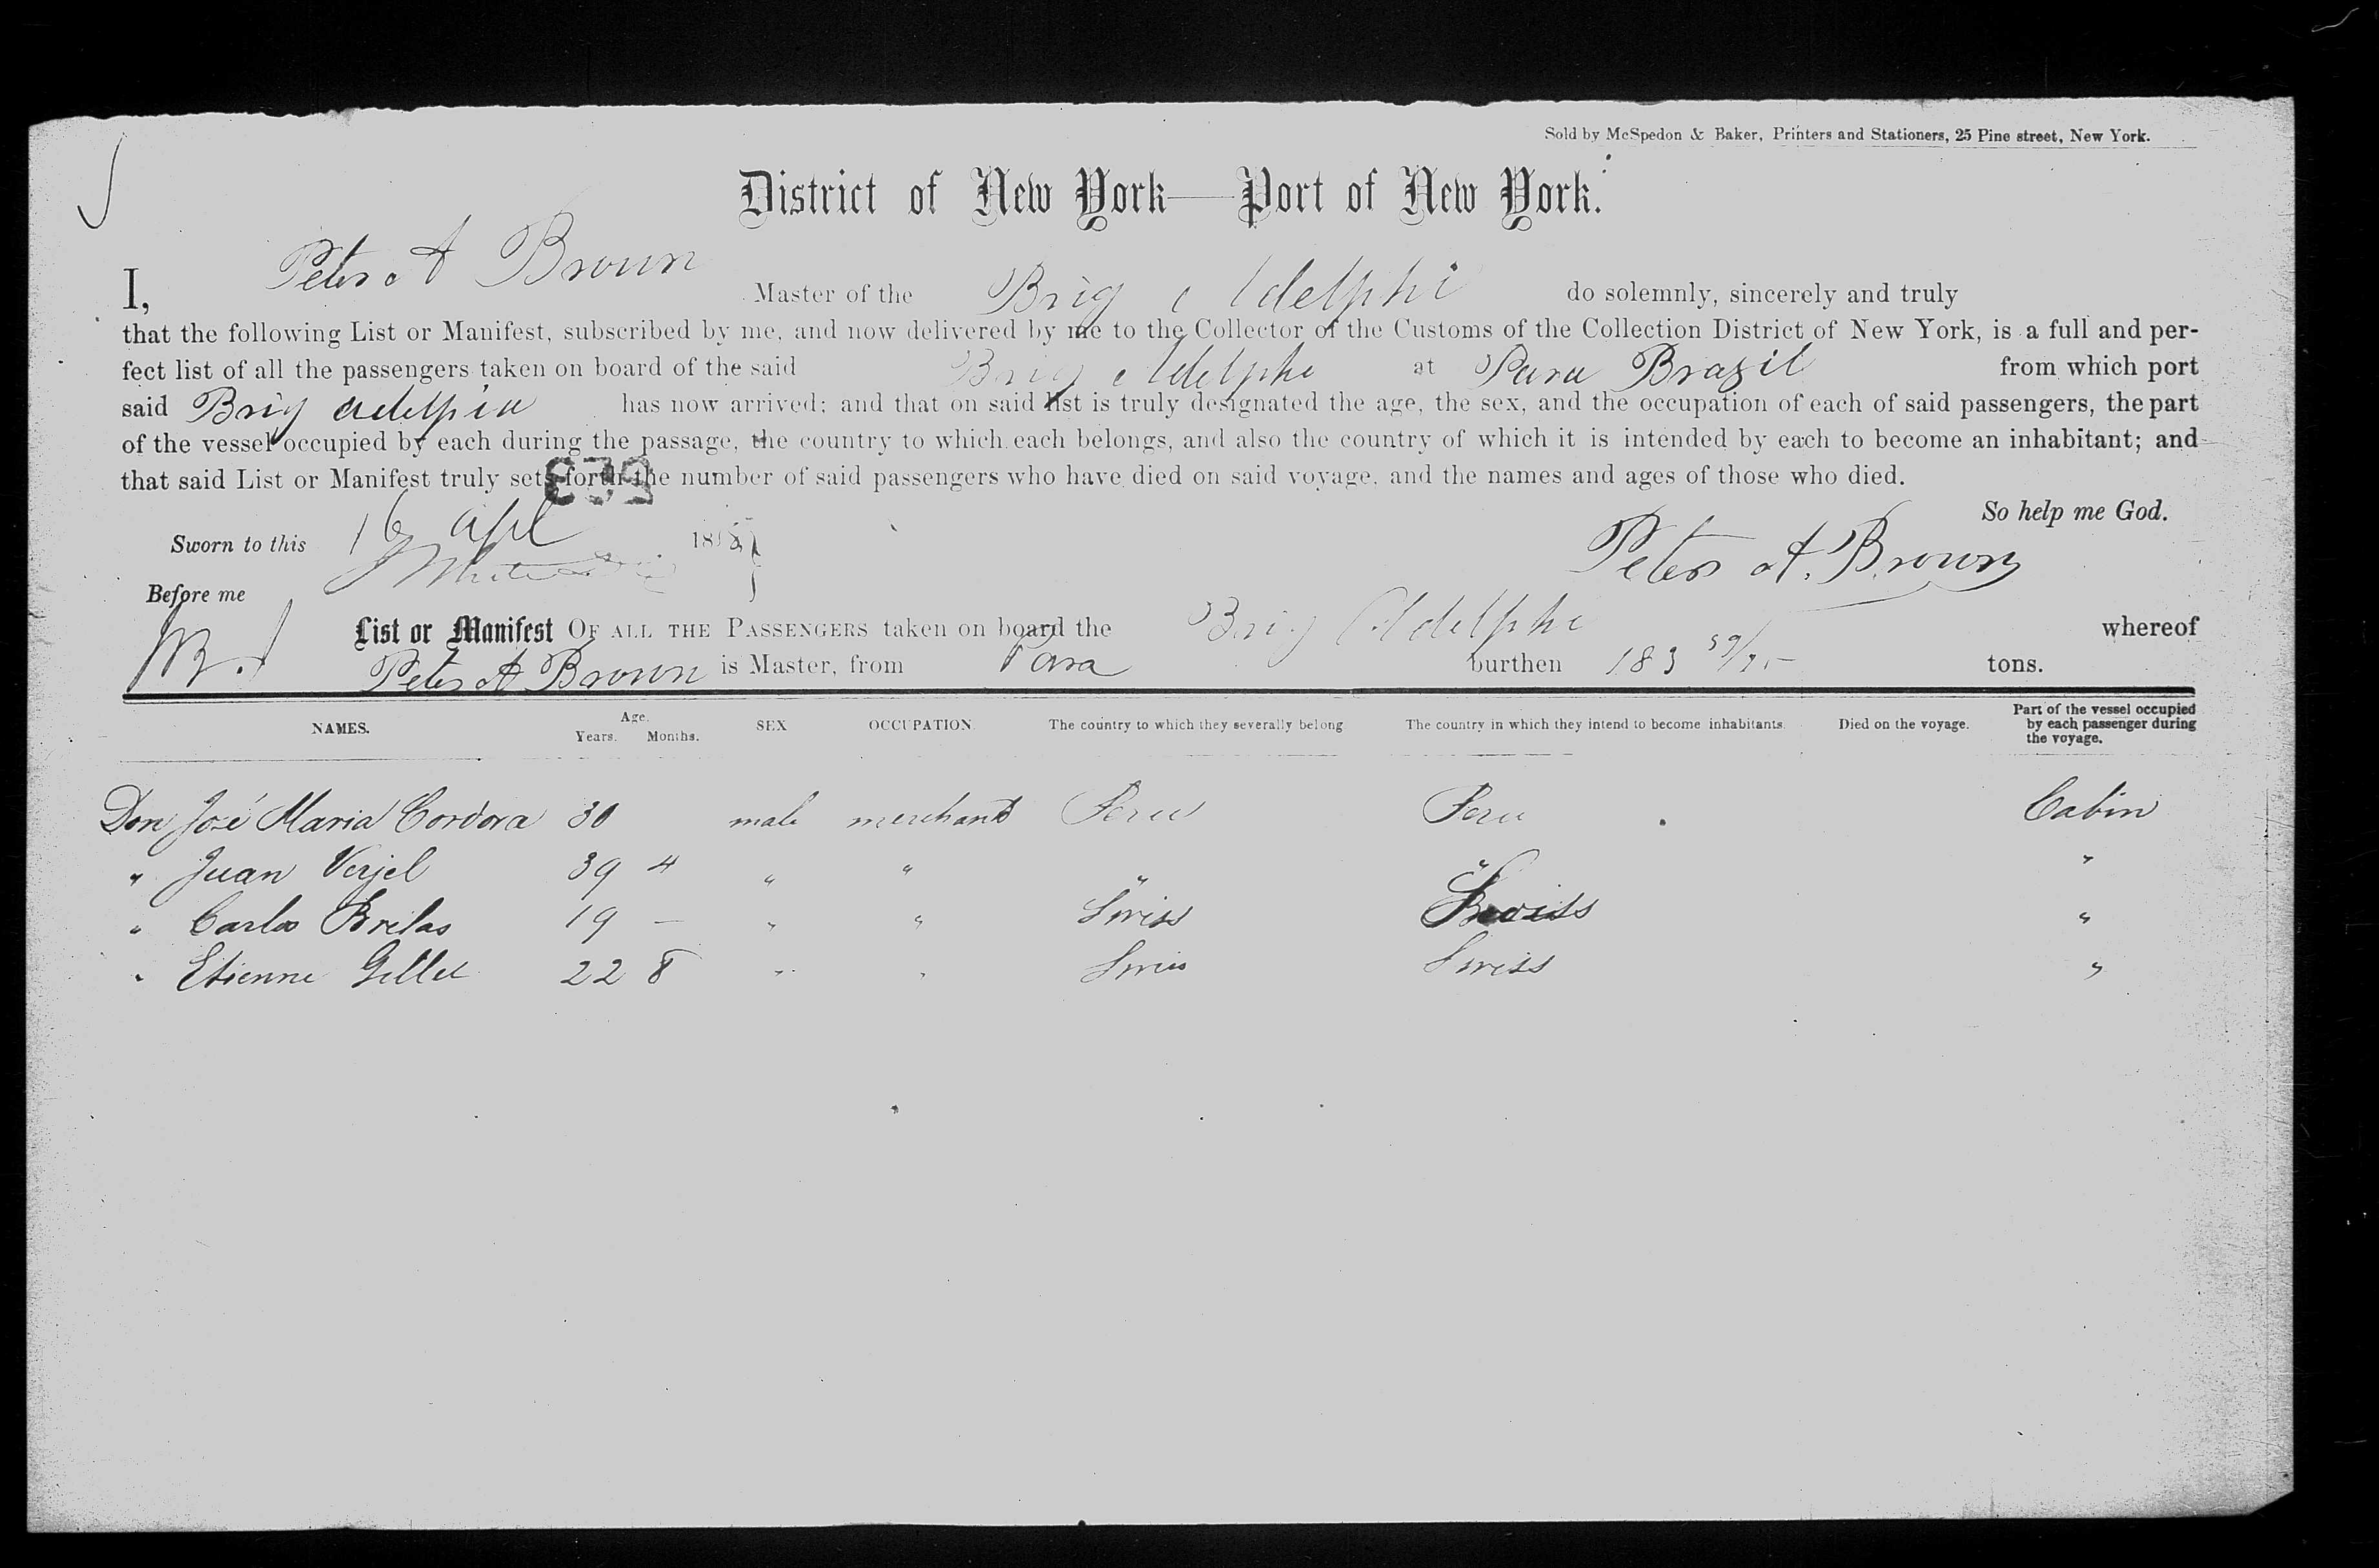 Sold by McSpedon & Baker, Printers and Stationers, 25 Pine street, New York.
District of New York—Port of New York.
I, Peter A Brown Master of the Brig Adelphi do solemnly, sincerely and truly
that the following List or Manifest, subscribed by me, and now delivered by me to the Collector of the Customs of the Collection District of New York, is a full and per-
fect list of all the passengers taken on board of the said Brig Adelphi at Para Brazil from which port
said Brig Adelphia has now arrived; and that on said list is truly designated the age, the sex, and the occupation of each of said passengers, the part
of the vessel occupied by each during the passage, the country to which each belongs, and also the country of which it is intended by each to become an inhabitant; and
that said List or Manifest truly sets forth the number of said passengers who have died on said voyage, and the names and ages of those who died.
So help me God.
Sworn to this 16 Apl 185
Peter A. Brown
Before me
List or Manifest OF ALL THE PASSENGERS taken on board the Brig Adelphi whereof
Peter A Brown is Master, from Para burthen 183 tons.
NAMES. Age. Years. Months. SEX OCCUPATION The country to which they severally belong The country in which they intend to become inhabitants. Died on the voyage. Part of the vessel occupied by each passenger during the voyage.
Don José Maria Cordova 30 male merchant Peru Peru Cabin
" Juan Verjel 39 4 " " " " "
" Carlos Brelas 19 — " " Swiss Swiss "
" Etienne Gillet 22 8 " " Swiss Swiss "